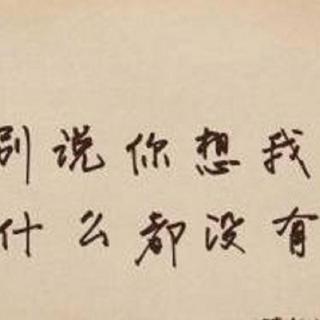 别说你想我
什么都没有